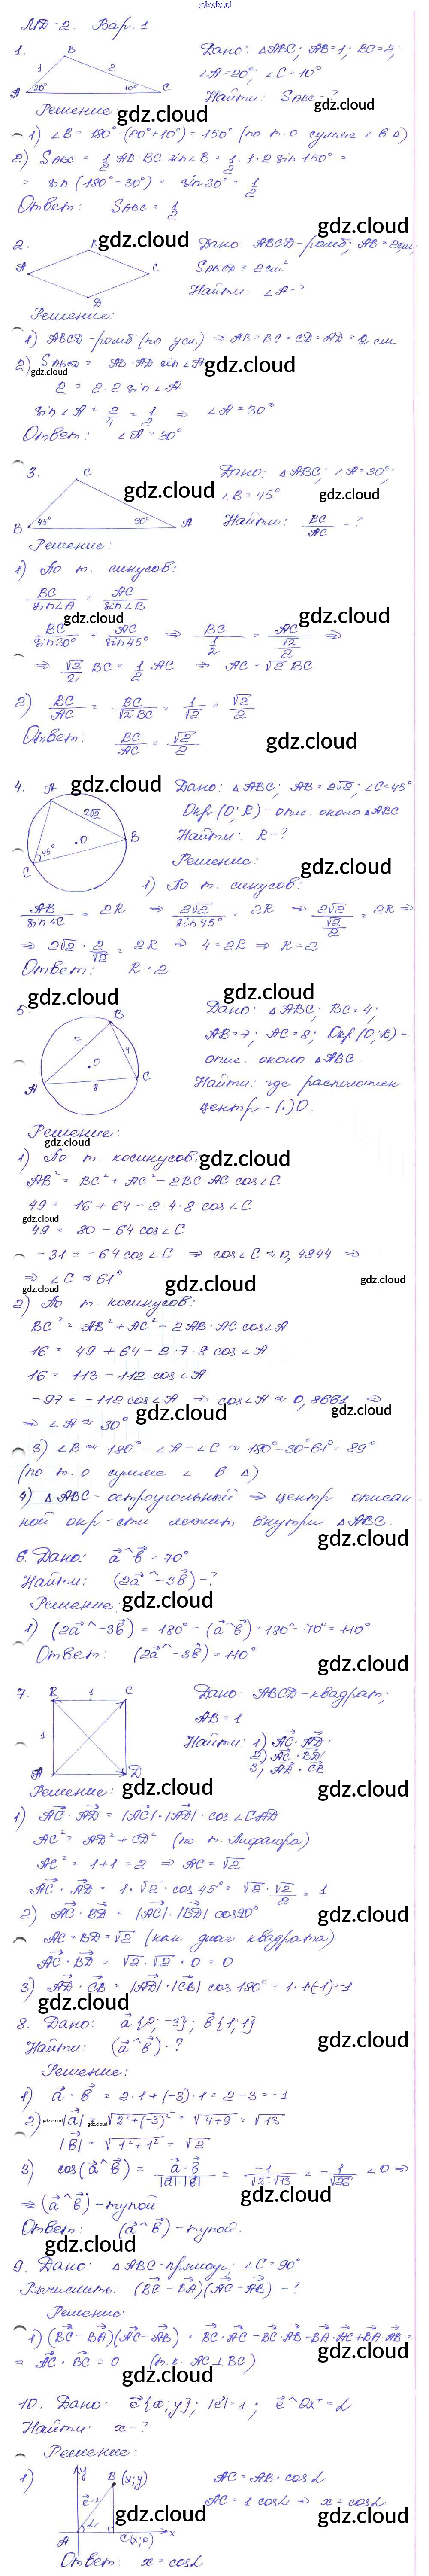 gdz.cloud
МД-2. Вар. 1
1.
B
1
2
A
20°
10°
C
Дано: △ABC; AB=1; BC=2;
∠A=20°; ∠C=10°
Найти: SABC-?
Решение:
gdz.cloud
gdz.cloud
1) ∠B = 180°-(20°+10°) = 150° (по т. о сумме ∠ в △)
2) SABC = 1/2 AB·BC sin∠B = 1/2·1·2 sin 150° =
= sin(180°-30°) = sin 30° = 1/2
Ответ: SABC = 1/2
gdz.cloud
2.
B
gdz.cloud
A
C
D
Дано: ABCD-ромб; AB=2см;
SABCD = 2см²
Найти: ∠A-?
Решение:
1) ABCD-ромб (по усл.) ⇒ AB=BC=CD=AD=2 см
2) SABCD = AB·AD sin∠A
gdz.cloud
gdz.cloud
2 = 2·2 sin∠A
sin∠A = 2/4 = 1/2 ⇒ ∠A=30°
Ответ: ∠A=30°
3.
C
B
45°
30°
A
gdz.cloud
Дано: △ABC; ∠A=30°;
∠B=45°
gdz.cloud
Найти: BC/AC -?
Решение:
1) По т. синусов:
BC/sin∠A = AC/sin∠B
gdz.cloud
gdz.cloud
BC/sin30° = AC/sin45° ⇒ BC/(1/2) = AC/(√2/2) ⇒
⇒ √2/2 BC = 1/2 AC ⇒ AC=√2 BC
2) BC/AC = BC/(√2 BC) = 1/√2 = √2/2
Ответ: BC/AC = √2/2
gdz.cloud
4.
A
gdz.cloud
2√2
O
B
C
45°
Дано: △ABC; AB=2√2; ∠C=45°
Окр(O;R)-опис. около △ABC
Найти: R-?
Решение:
gdz.cloud
1) По т. синусов:
AB/sin∠C = 2R ⇒ 2√2/sin45° = 2R ⇒ 2√2/(√2/2) = 2R ⇒
⇒ 2√2·2/√2 = 2R ⇒ 4=2R ⇒ R=2
Ответ: R=2
gdz.cloud
gdz.cloud
5.
B
7
4
O
A
8
C
Дано: △ABC; BC=4;
AB=7; AC=8; Окр(O;R)-
опис. около △ABC.
Найти: где расположен
центр-(.)O.
Решение:
gdz.cloud
1) По т. косинусов:
gdz.cloud
AB² = BC² + AC² - 2BC·AC cos∠C
49 = 16+64-2·4·8 cos∠C
gdz.cloud
49 = 80-64 cos∠C
-31 = -64 cos∠C ⇒ cos∠C≈0,4844 ⇒
⇒ ∠C≈61°
gdz.cloud
gdz.cloud
gdz.cloud
2) По т. косинусов:
BC² = AB² + AC² - 2AB·AC cos∠A
16 = 49+64-2·7·8 cos∠A
16 = 113-112 cos∠A
-97 = -112 cos∠A ⇒ cos∠A≈0,8661 ⇒
⇒ ∠A≈30°
gdz.cloud
gdz.cloud
3) ∠B≈180°-∠A-∠C≈180°-30°-61°=89°
(по т. о сумме ∠ в △)
4) △ABC-остроугольный ⇒ центр описан
ной окр-сти лежит внутри △ABC.
gdz.cloud
6. Дано: a^b = 70°
Найти: (2a^-3b)-?
Решение:
gdz.cloud
1) (2a^-3b) = 180°-(a^b)=180°-70°=110°
Ответ: (2a^-3b)=110°
gdz.cloud
7.
B
1
C
1
A
D
Дано: ABCD-квадрат;
AB=1
Найти: 1) AC·AD;
2) AC·BD;
3) AD·CB
Решение:
gdz.cloud
gdz.cloud
1) AC·AD = |AC|·|AD|·cos∠CAD
AC² = AD²+CD² (по т. Пифагора)
AC² = 1+1=2 ⇒ AC=√2
AC·AD = 1·√2·cos45° = √2·√2/2 = 1
2) AC·BD = |AC|·|BD| cos90°
gdz.cloud
AC=BD=√2 (как диаг. квадрата)
AC·BD = √2·√2·0=0
3) AD·CB = |AD|·|CB| cos180° = 1·1·(-1)=-1
gdz.cloud
8. Дано: a{2;-3}; b{1;1}
gdz.cloud
Найти: (a^b)-?
Решение:
1) a·b = 2·1+(-3)·1=2-3=-1
2) |a| = √(2²+(-3)²) = √(4+9) = √13
gdz.cloud
gdz.cloud
|b| = √(1²+1²) = √2
3) cos(a^b) = a·b/(|a|·|b|) = -1/(√2·√13) = -1/√26 <0 ⇒
gdz.cloud
⇒ (a^b)-тупой
Ответ: (a^b)-тупой.
gdz.cloud
9. Дано: △ABC-прямоуг; ∠C=90°
Вычислить: (BC-BA)(AC-AB)-?
Решение:
1) (BC-BA)(AC-AB) = BC·AC-BC·AB-BA·AC+BA·AB=
gdz.cloud
= AC·BC=0 (т.к. AC⊥BC)
gdz.cloud
10. Дано: e{x;y}; |e|=1; e^Ox⁺=α
Найти: x-?
gdz.cloud
Решение:
1)
y
B(x;y)
e=1
α
A
C(x;0)
x
AC=AB·cosα
AC=1·cosα ⇒ x=cosα
gdz.cloud
gdz.cloud
Ответ: x=cosα